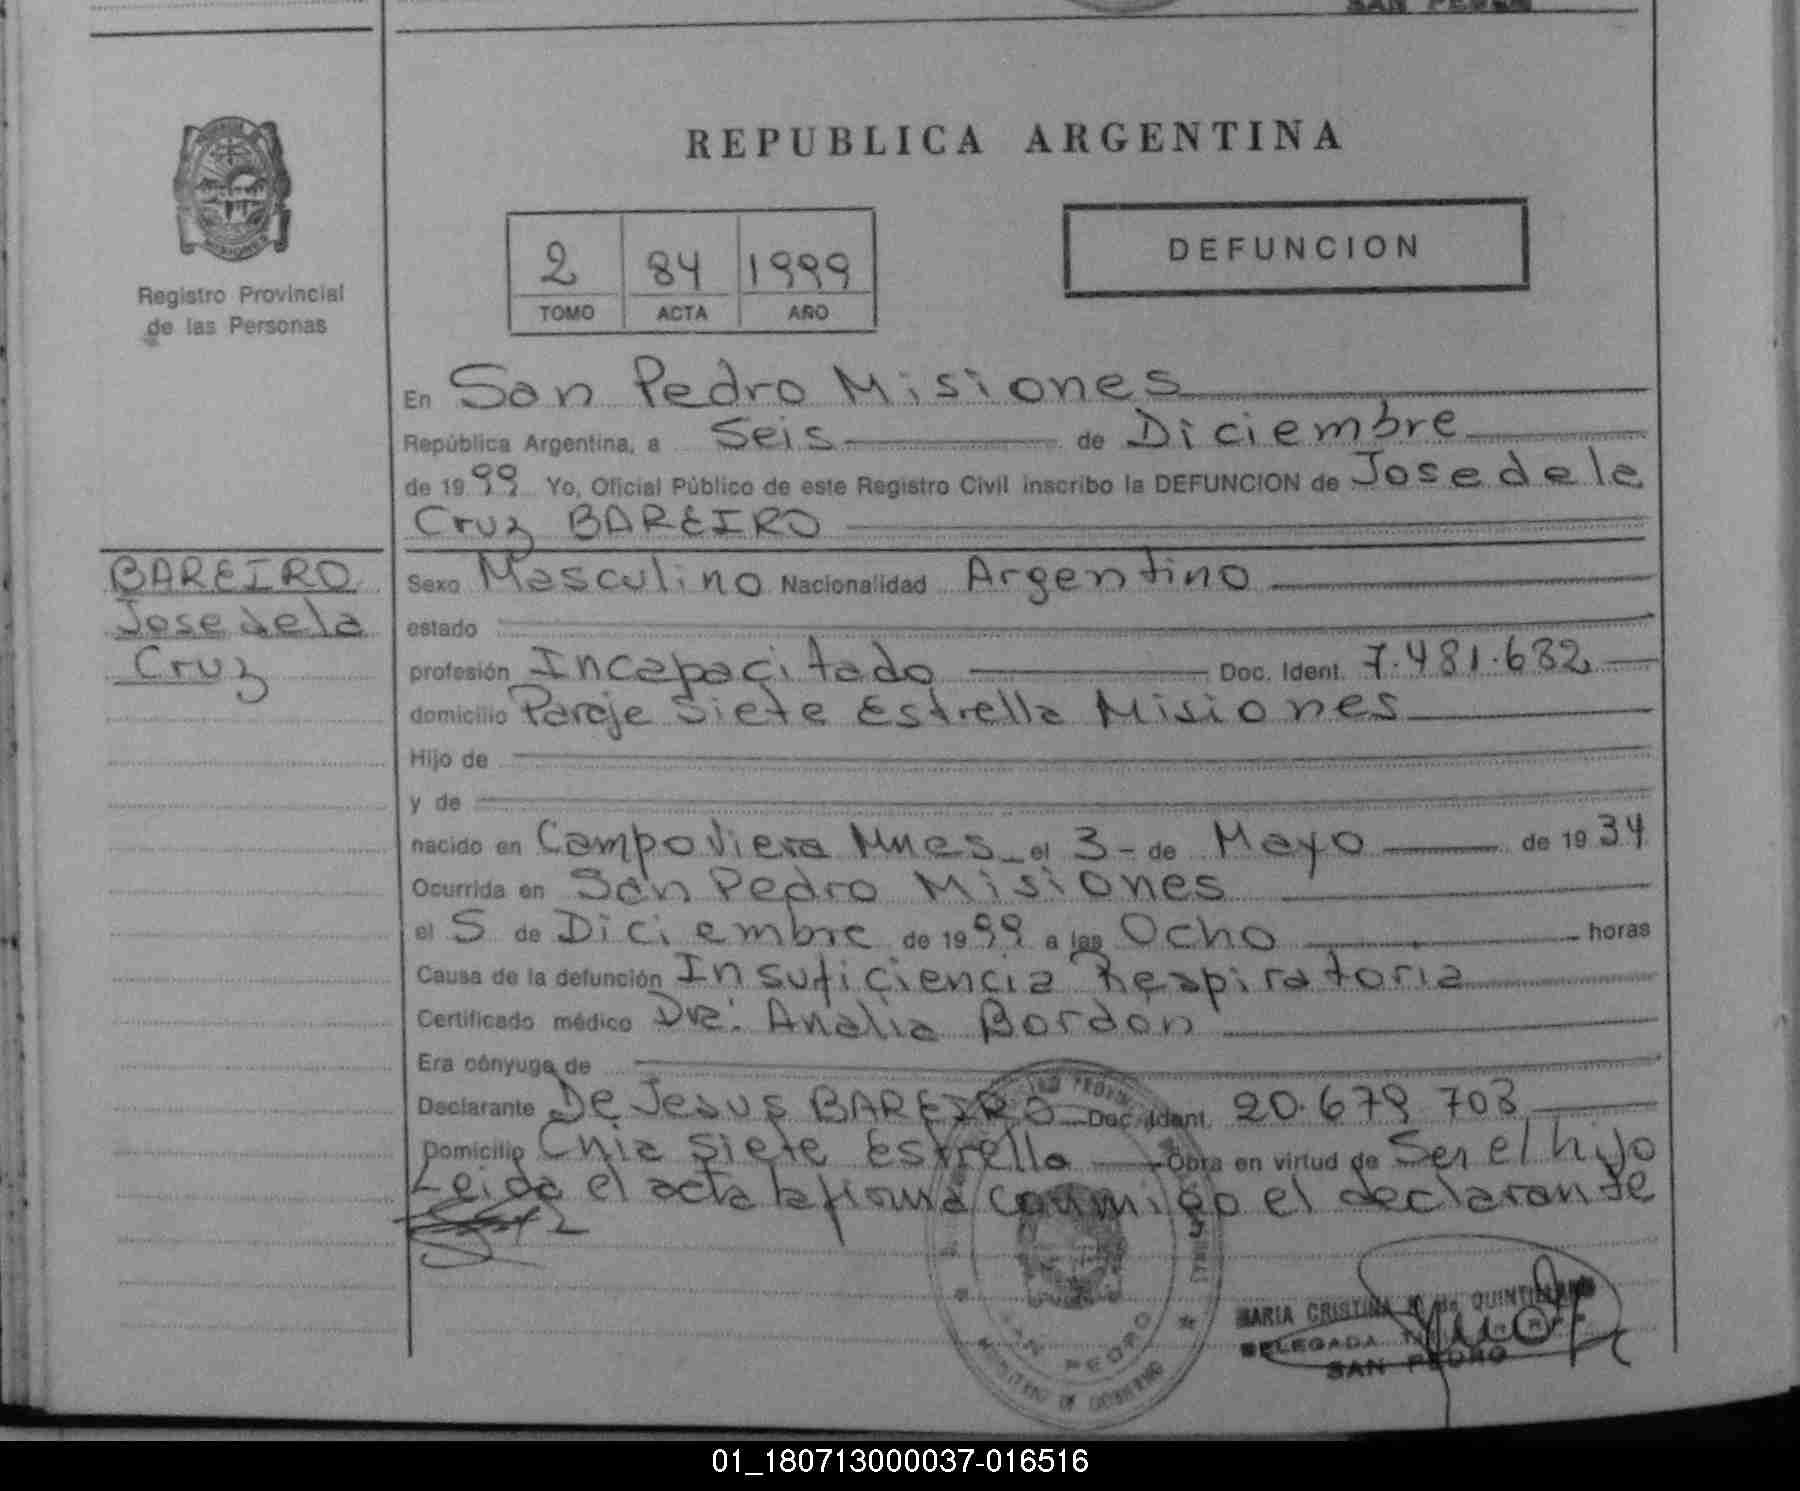 SAN PEDRO
REPUBLICA ARGENTINA
Registro Provincial
de las Personas
2 84 1999
TOMO ACTA AÑO
DEFUNCION
En San Pedro Misiones
República Argentina, a Seis de Diciembre
de 1999 Yo, Oficial Público de este Registro Civil inscribo la DEFUNCION de Jose de la
Cruz BAREIRO
BAREIRO
Jose de la
Cruz
Sexo Masculino Nacionalidad Argentino
estado
profesión Incapacitado Doc. Ident. 7.481.632
domicilio Paraje Siete Estrella Misiones
Hijo de
y de
nacido en Campo Viera Mnes el 3 - de Mayo de 1934
Ocurrida en San Pedro Misiones
el 5 de Diciembre de 1999 a las Ocho horas
Causa de la defunción Insuficiencia Respiratoria
Certificado médico Dra: Analia Bordon
Era cónyuge de
Declarante De Jesus BAREIRO Doc. Ident. 20.679 703
Domicilio Cnia Siete Estrella Obra en virtud de Ser el hijo
Leida el acta la firma conmigo el declarante
SAN PEDRO
MINISTERIO DE GOBIERNO
MARIA CRISTINA de QUINTILIANO
DELEGADA
SAN PEDRO
01_180713000037-016516